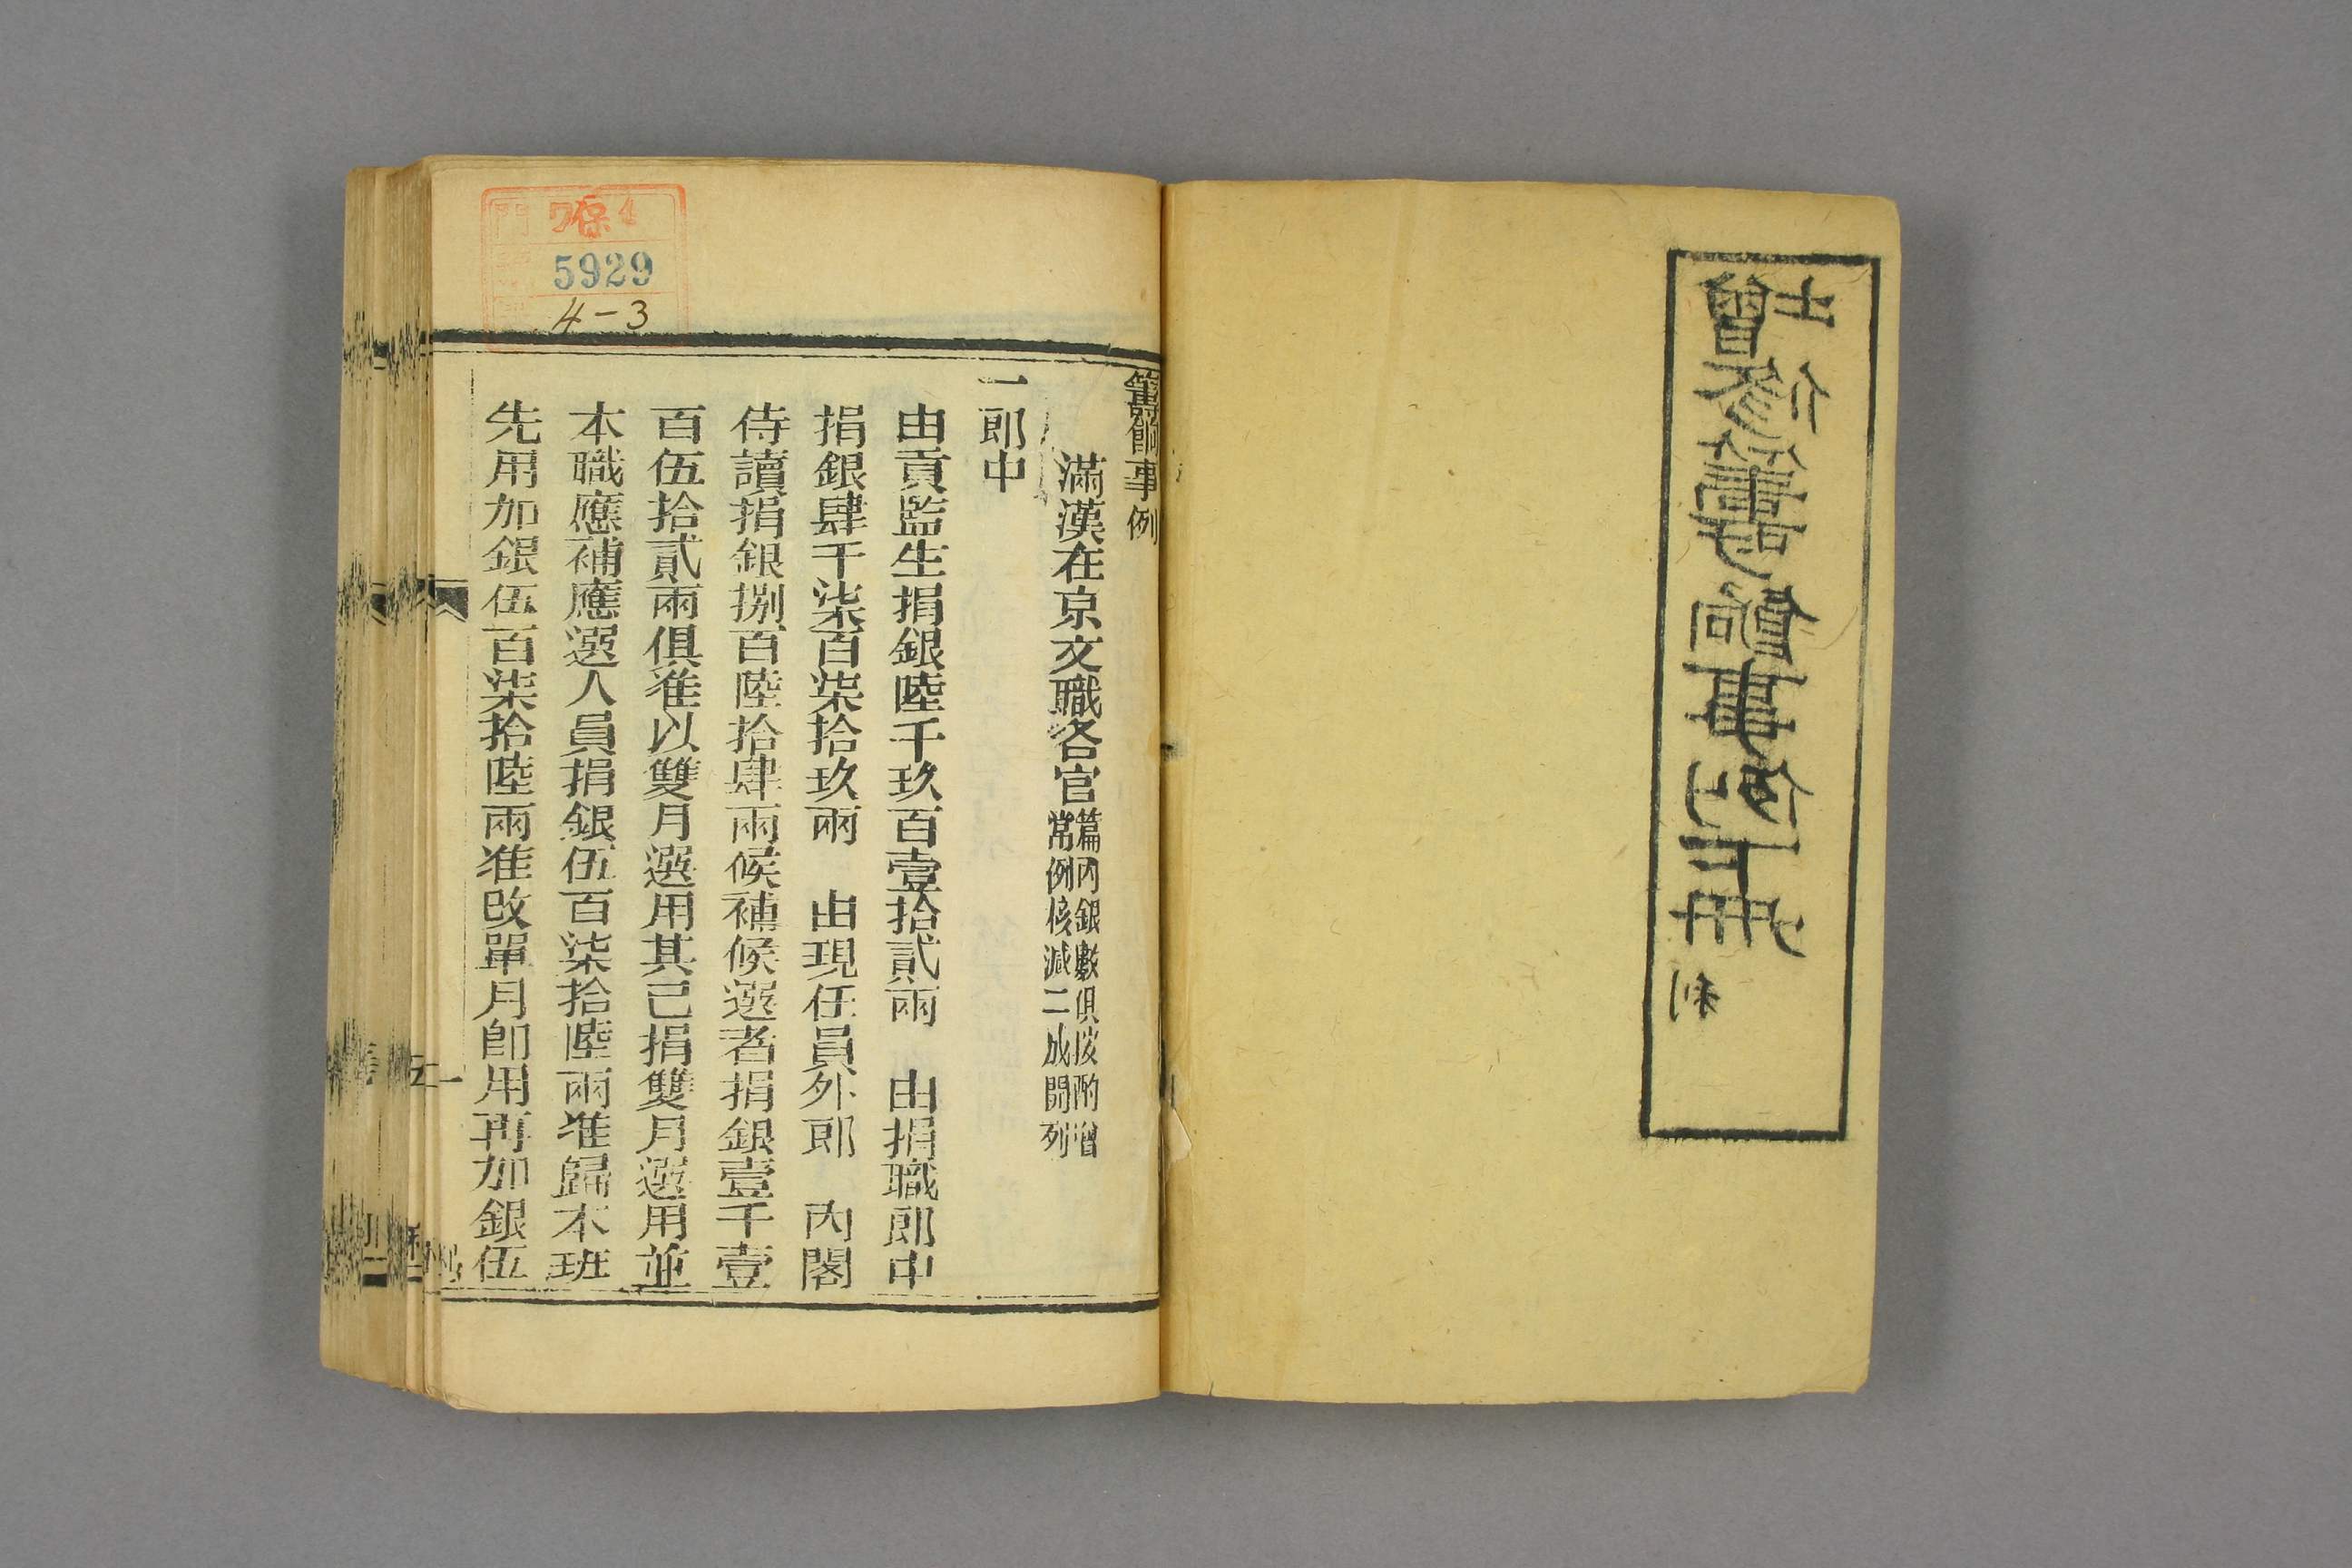 增修籌餉事例三冊
利
籌餉事例
滿漢在京文職各官 篇內銀數俱從酌增
常例核減二成開列
一郎中
由貢監生捐銀陸千玖百壹拾貳兩 由捐職郎中
捐銀肆千柒百柒拾玖兩 由現任員外郎 內閣
侍讀捐銀捌百陸拾肆兩候補候選者捐銀壹千壹
百伍拾貳兩俱准以雙月選用其已捐雙月選用並
本職應補應選人員捐銀伍百柒拾陸兩准歸本班
先用加銀伍百柒拾陸兩准改單月即用再加銀伍
5929
4-3